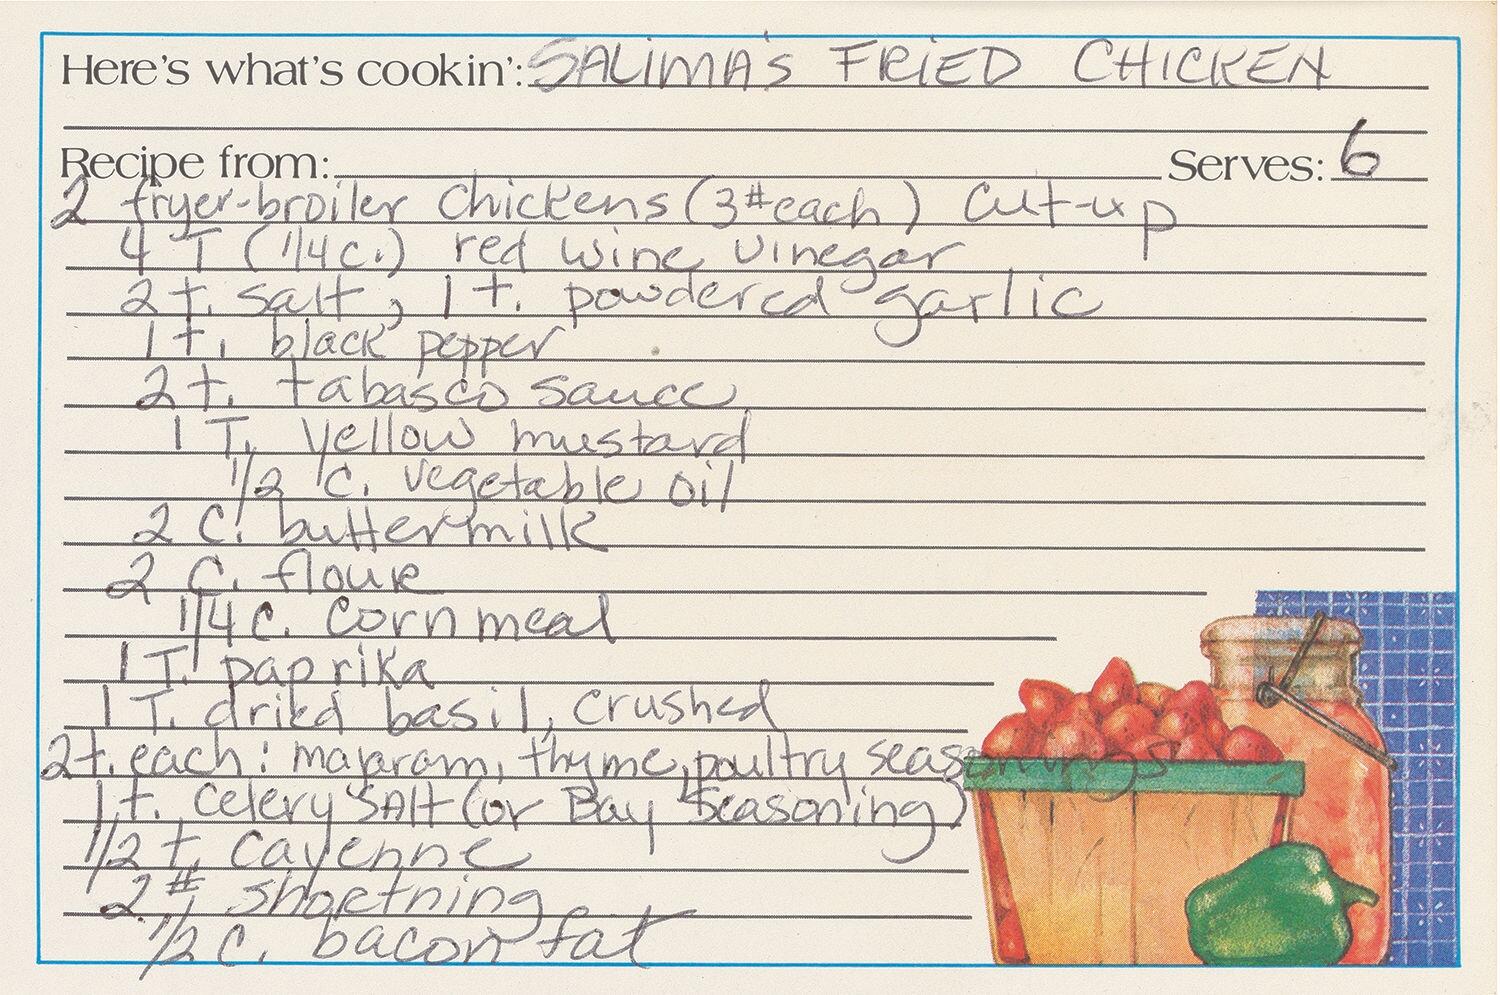 Here's what's cookin': SALIMA'S FRIED CHICKEN
Recipe from: Serves: 6
2 fryer-broiler chickens (3# each) cut-up
4 T (1/4 c.) red wine vinegar
2 t. salt, 1 t. powdered garlic
1 t. black pepper
2 t. tabasco sauce
1 T. yellow mustard
1/2 c. vegetable oil
2 C. buttermilk
2 C. flour
1/4 c. corn meal
1 T. paprika
1 T. dried basil, crushed
2 t. each: majaram, thyme, poultry seasonings
1 t. celery SAlt (or Bay Seasoning)
1/2 t. cayenne
2 # shortning
1/2 c. bacon fat